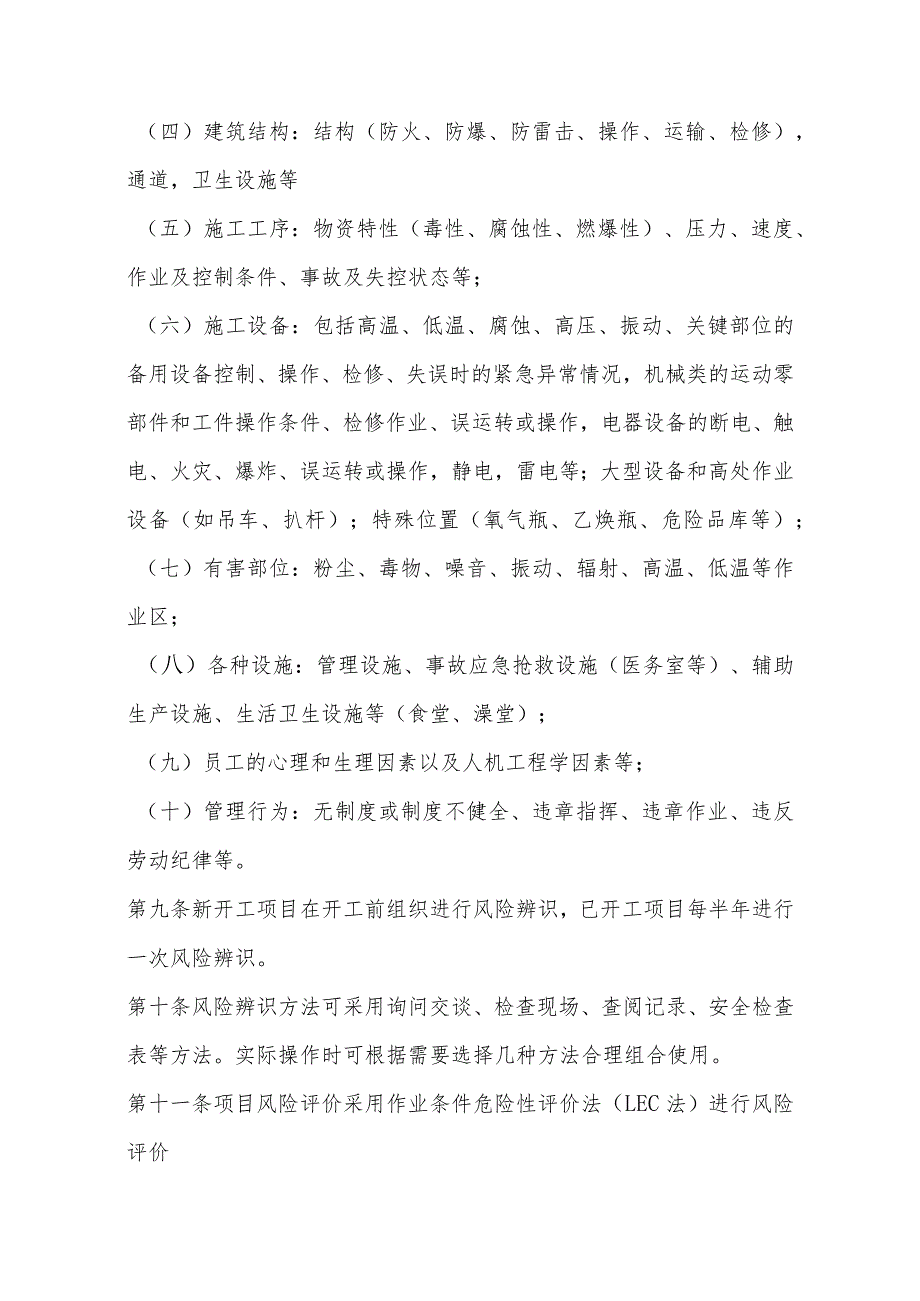 （四）建筑结构：结构（防火、防爆、防雷击、操作、运输、检修），
通道，卫生设施等
（五）施工工序：物资特性（毒性、腐蚀性、燃爆性）、压力、速度、
作业及控制条件、事故及失控状态等；
（六）施工设备：包括高温、低温、腐蚀、高压、振动、关键部位的
备用设备控制、操作、检修、失误时的紧急异常情况，机械类的运动零
部件和工件操作条件、检修作业、误运转或操作，电器设备的断电、触
电、火灾、爆炸、误运转或操作，静电，雷电等；大型设备和高处作业
设备（如吊车、扒杆）；特殊位置（氧气瓶、乙焕瓶、危险品库等）；
（七）有害部位：粉尘、毒物、噪音、振动、辐射、高温、低温等作
业区；
（八）各种设施：管理设施、事故应急抢救设施（医务室等）、辅助
生产设施、生活卫生设施等（食堂、澡堂）；
（九）员工的心理和生理因素以及人机工程学因素等；
（十）管理行为：无制度或制度不健全、违章指挥、违章作业、违反
劳动纪律等。
第九条新开工项目在开工前组织进行风险辨识，已开工项目每半年进行
一次风险辨识。
第十条风险辨识方法可采用询问交谈、检查现场、查阅记录、安全检查
表等方法。实际操作时可根据需要选择几种方法合理组合使用。
第十一条项目风险评价采用作业条件危险性评价法（LEC 法）进行风险
评价